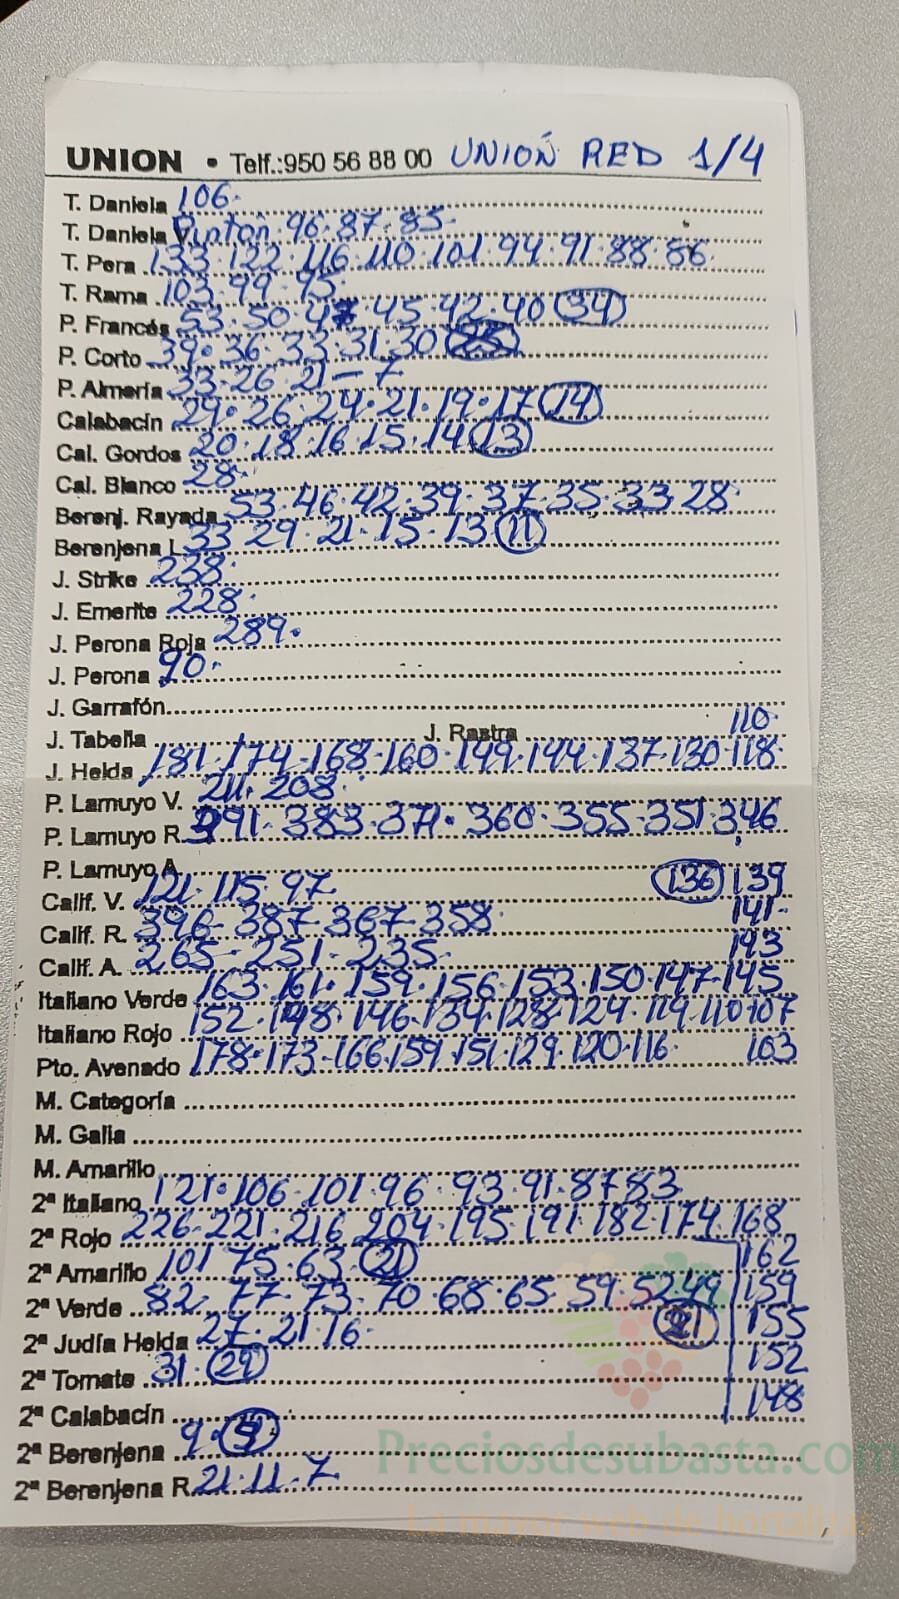 UNION • Telf.:950 56 88 00 UNION RED 1/4
T. Daniela 106.
T. Daniela Pinton 96.87.85.
T. Pera 133.122.116.110.101.94.91.88.86.
T. Rama 103.99.95.
P. Francés 53.50.47.45.42.40 34
P. Corto 39.36.33.31.30 25
P. Almería 33.26.21-7
Calabacín 29.26.24.21.19.17 14
Cal. Gordos 20.18.16.15.14 13
Cal. Blanco 28.
Berenj. Rayada 53.46.42.39.37.35.33 28.
Berenjena L. 33 29.21.15.13 11
J. Strike 238.
J. Emerite 228.
J. Perona Roja 289.
J. Perona 90.
J. Garrafón
J. Tabella J. Rastra 110.
J. Helda 181.174-168.160.149.144.137.130.118.
P. Lamuyo V. 211.208.
P. Lamuyo R. 391.383.371.360.355.351.346
P. Lamuyo A.
Calif. V. 121.115.97 136 139
Calif. R. 396-387-367-358 141-
Calif. A. 265-251-235. 143
Italiano Verde 163.161.159.156.153.150.147.145
Italiano Rojo 152.148.146.134.128.124.119.110.107
Pto. Avenado 178.173-166.159.151.129.120.116. 103
M. Categoría
M. Galia
M. Amarillo
2ª Italiano 121.106.101.96.93.91.87 83
2ª Rojo 226-221.216 204.195.191.182.174.168
2ª Amarillo 101 75.63. 21 162
2ª Verde 82.77-73-70.68.65.59.52 49 159
2ª Judía Helda 27.21.16. 21 155
2ª Tomate 31. 29 152
2ª Calabacín 148
2ª Berenjena 9.
2ª Berenjena R. 21.11.7.
Preciosdesubasta.com
La mayor web de hortalizas